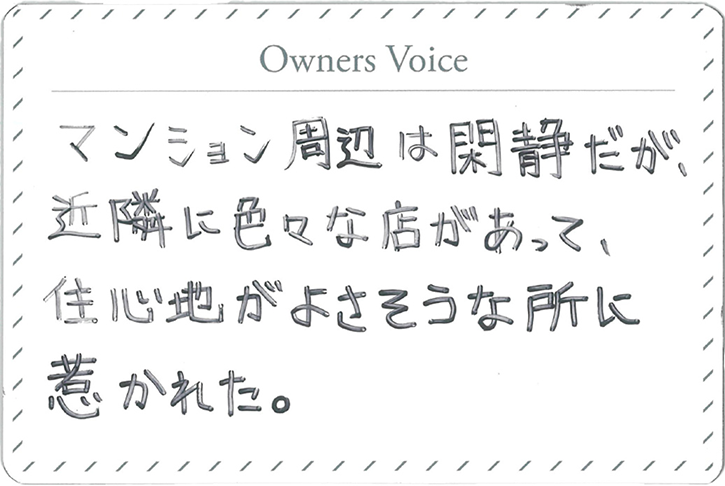 Owners Voice
マンション周辺は閑静だが、
近隣に色々な店があって、
住心地がよさそうな所に
惹かれた。